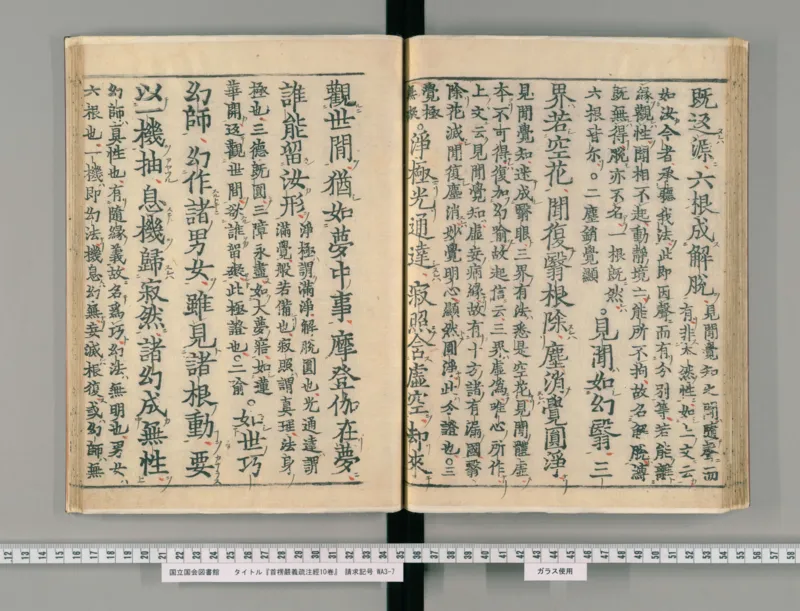 既返源六根成解脱
見聞覺知之聞隨聲而
有非本湛性如上文云
如汝今者承聽我法此即因聲而有分別等若能離
緣觀性聞相不起動靜境亡能所不拘故名解脱
既無得脱亦不名一根既然
六根皆尓。二塵銷覺顯
。見聞如幻翳三
界若空花聞復翳根除塵消覺圓淨
見聞覺知迷成翳眼三界有法悉是空花見聞體虛
本不可得復加幻喻故起信云三界虛僞唯心所作
上文云見聞覺知虛妄病緣故有十方諸有漏國翳
除花滅聞復塵消妙覺明心顯然圓淨此今證也。三
覺極
無礙
。淨極光通達寂照含虛空却來
觀世間猶如夢中事摩登伽在夢
誰能留汝形
淨極謂滿淨解脱圓也光通達謂
滿覺般若備也寂照謂真理法身
極也三德既圓三障永盡如大夢寤如蓮
華開返觀世間欲誰留礙此極證也。二喻
。如世巧
幻師幻作諸男女雖見諸根動要
以一機抽息機歸寂然諸幻成無性
幻師真性也有隨緣義故名爲巧幻法無明也男女
六根也一機即幻法機息幻無妄滅根復或幻師無
国立国会図書館 タイトル『首楞嚴義疏注經10巻』 請求記号 WA3-7
ガラス使用